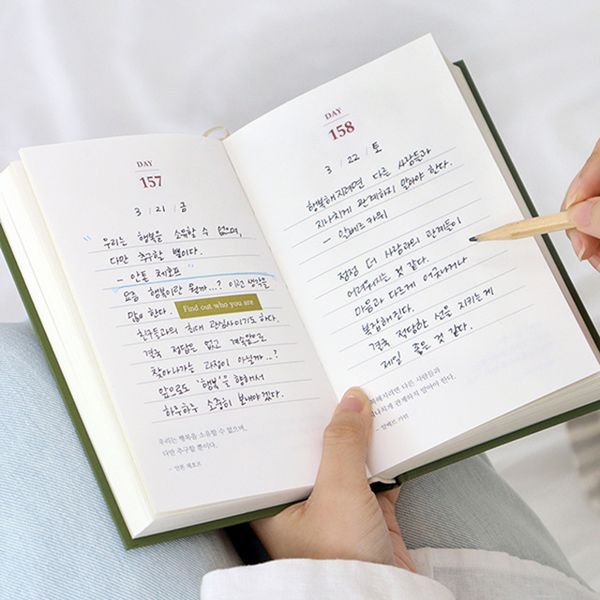 DAY
157
3 / 21 / 금
" 우리는 행복을 소유할 수 없으며,
다만 추구할 뿐이다.
- 안톤 체호프 "
요즘 행복이란 뭘까...? 이런 생각을
많이 한다.
Find out who you are
친구들과의 최대 관심사이기도 하다.
결국 정답은 없고 계속앞으로
찾아나가는 과정이 아닐까...?
앞으로도 '행복'을 향해서
하루하루 소중히 보내야겠다.
우리는 행복을 소유할 수 없으며,
다만 추구할 뿐이다.
- 안톤 체호프
DAY
158
3 / 22 / 토
행복해지려면 다른 사람들과
지나치게 관계하지 말아야 한다.
- 알베르 카뮈
점점 더 사람과의 관계들이
어려워지는 것 같다.
마음과 다르게 어긋나거나
복잡해진다.
결국 적당한 선을 지키는게
제일 좋은 것 같다.
복해지려면 다른 사람들과
나치게 관계하지 말아야 한다.
- 알베르 카뮈